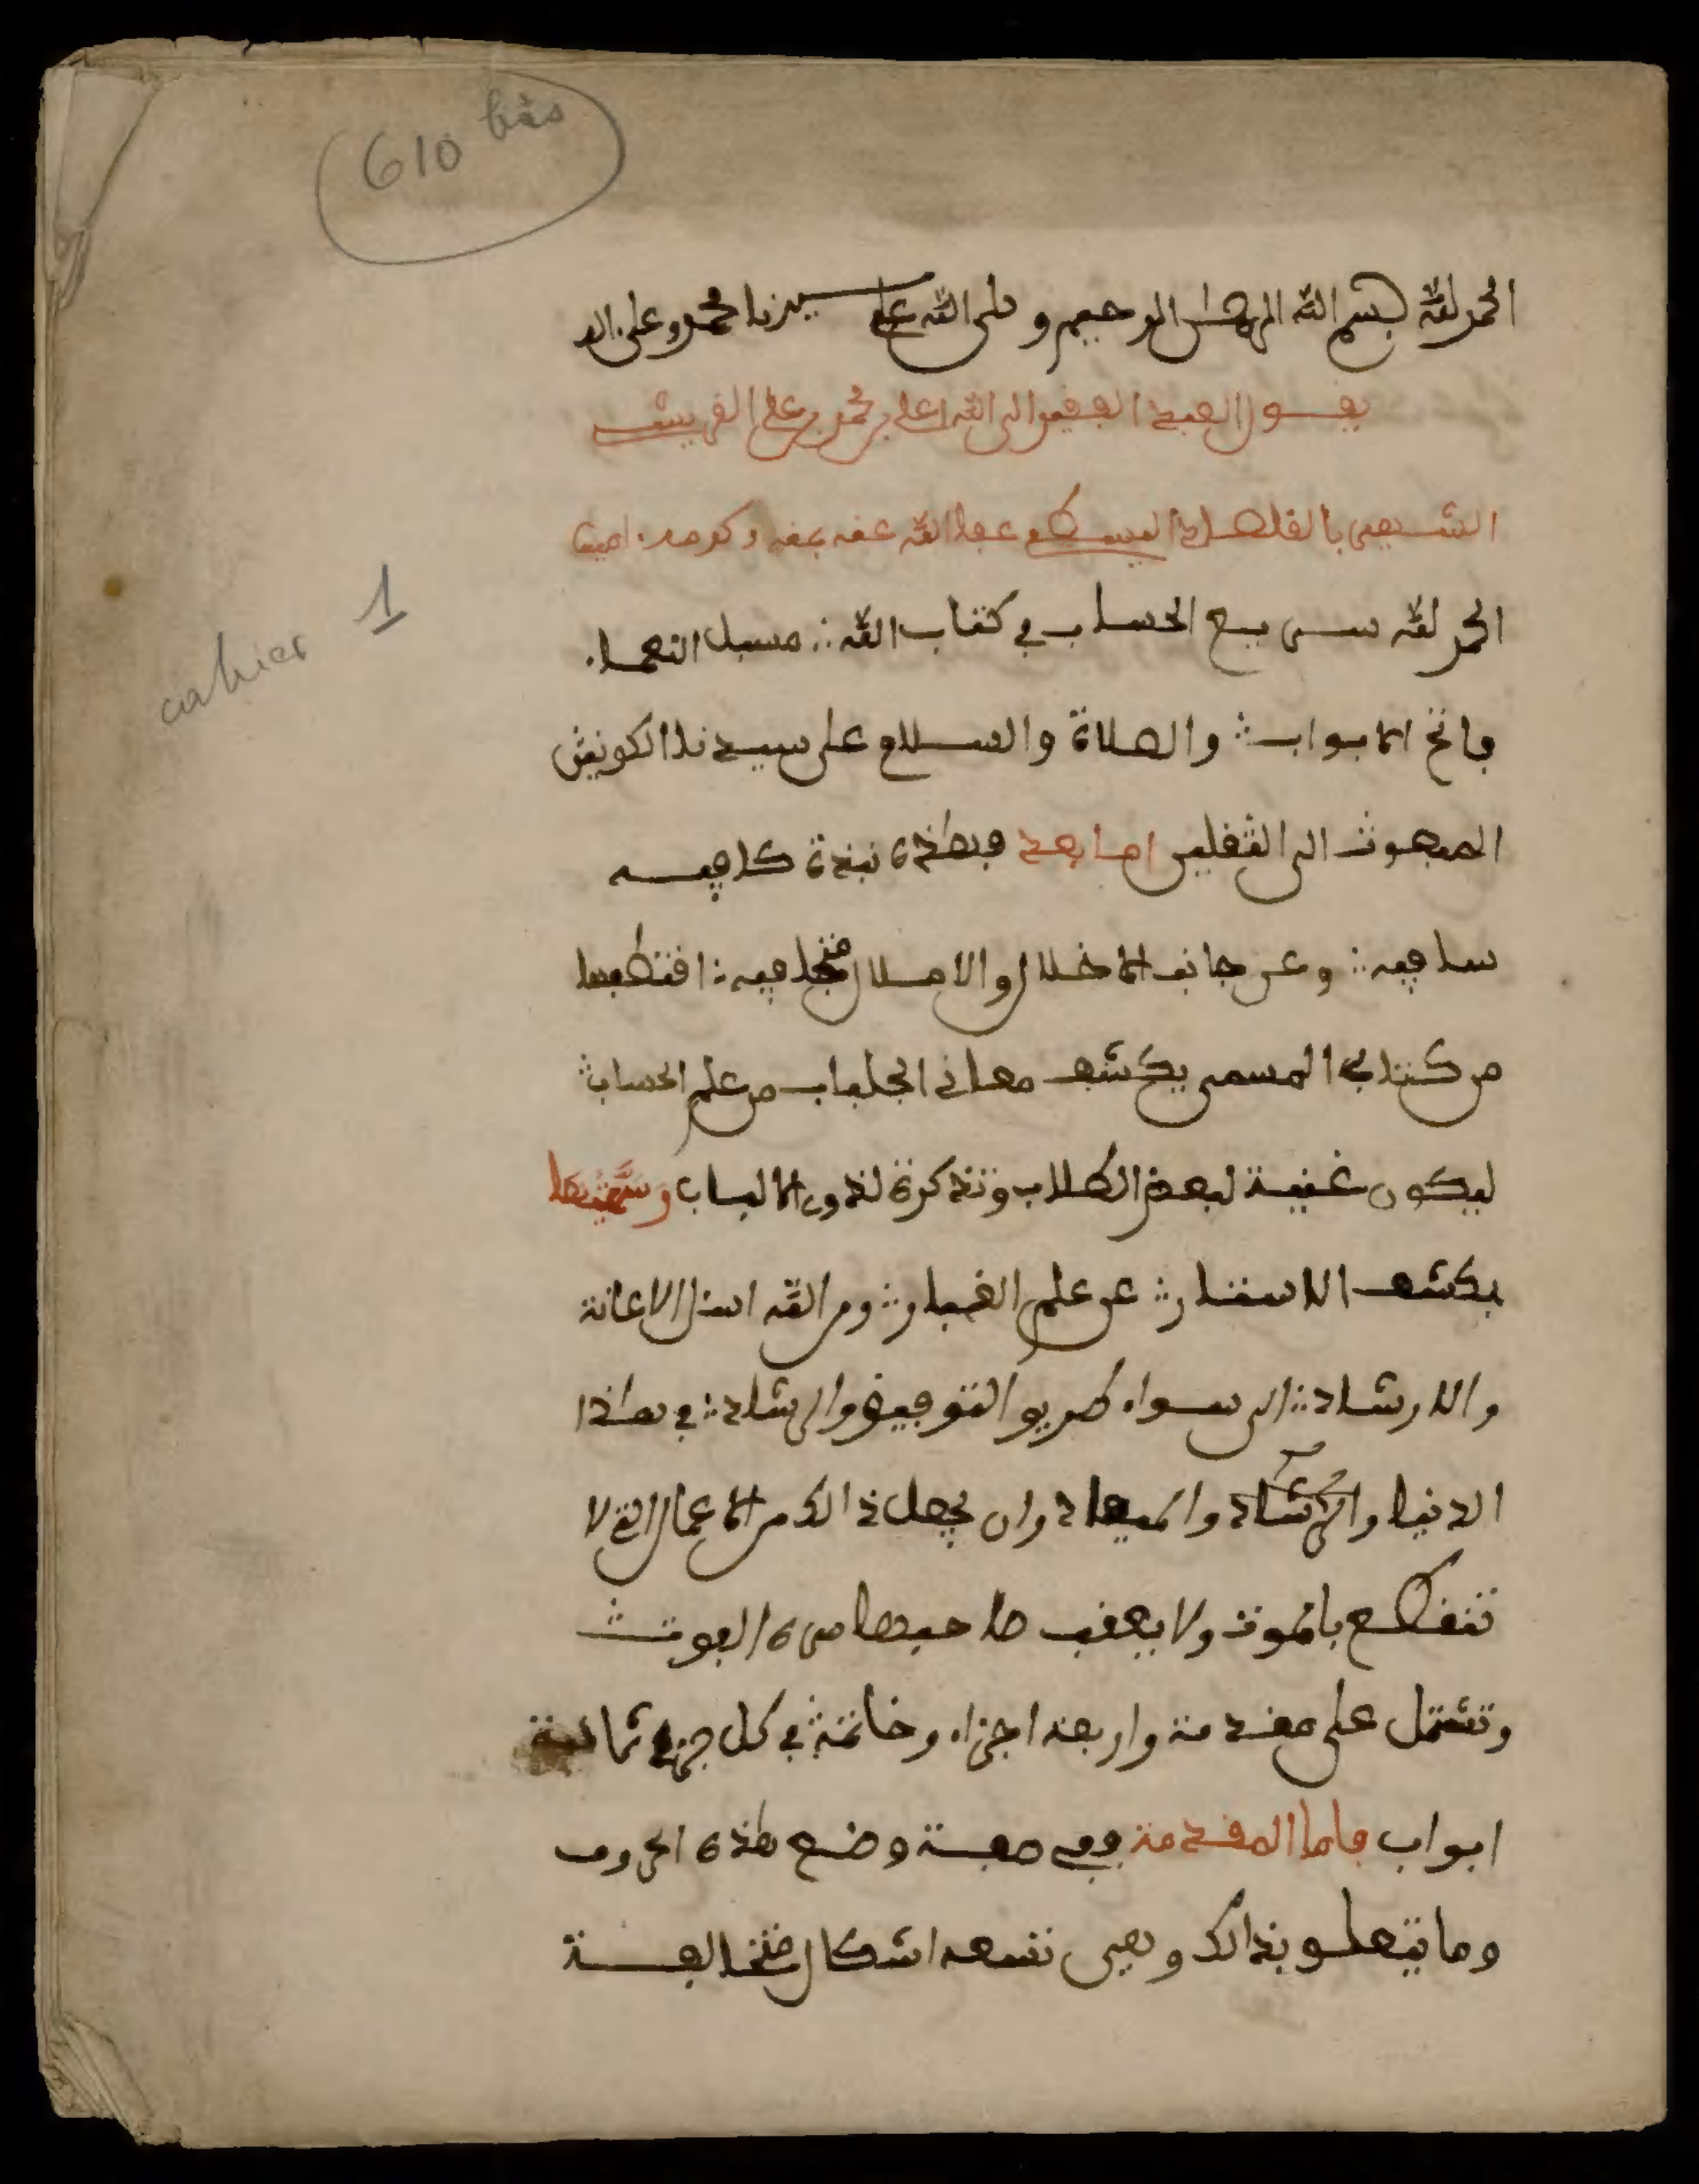 610 bis
الحمد لله بسم الله الرحمن الرحيم و صلى الله على سيدنا محمد وعلى اله
يقول العبد الفقير الى الله على بن محمد بن على القرشى
الشهير بالقلصادي البسطي عفا الله عنه بمنه وكرمه امين
الحمد لله سريع الحساب في كتاب الله
فاتح الابواب والصلاة والسلام على سيدنا الكونين
cahier 1
المبعوث الى الثقلين اما بعد فهاذه نبذة كافيه
شافيه وعن جانب الاخلال والاملال متجافيه اقتطفتها
من كتابي المسمى بكشف معاني الجلباب من علم الحساب
ليكون غنية لبعض الطلاب وتذكرة لذوي الالباب وسميتها
بكشف الاستار عن علم الغبار ومن الله اسئل الاعانة
والارشاد الى سواء طريق التوفيق والرشاد في هاذا
الدنيا والميعاد وان يجعل ذالك من الاعمال التي لا
تنقطع بالموت ولا يعقب صاحبها حسرة الفوت
وتشتمل على مقدمة واربعة اجزاء وخاتمة في كل جزء ثمانية
ابواب فاما المقدمة ففي صفة وضع هاذه الحروف
وما يتعلق بذالك وهي تسعه اشكال مختالفة